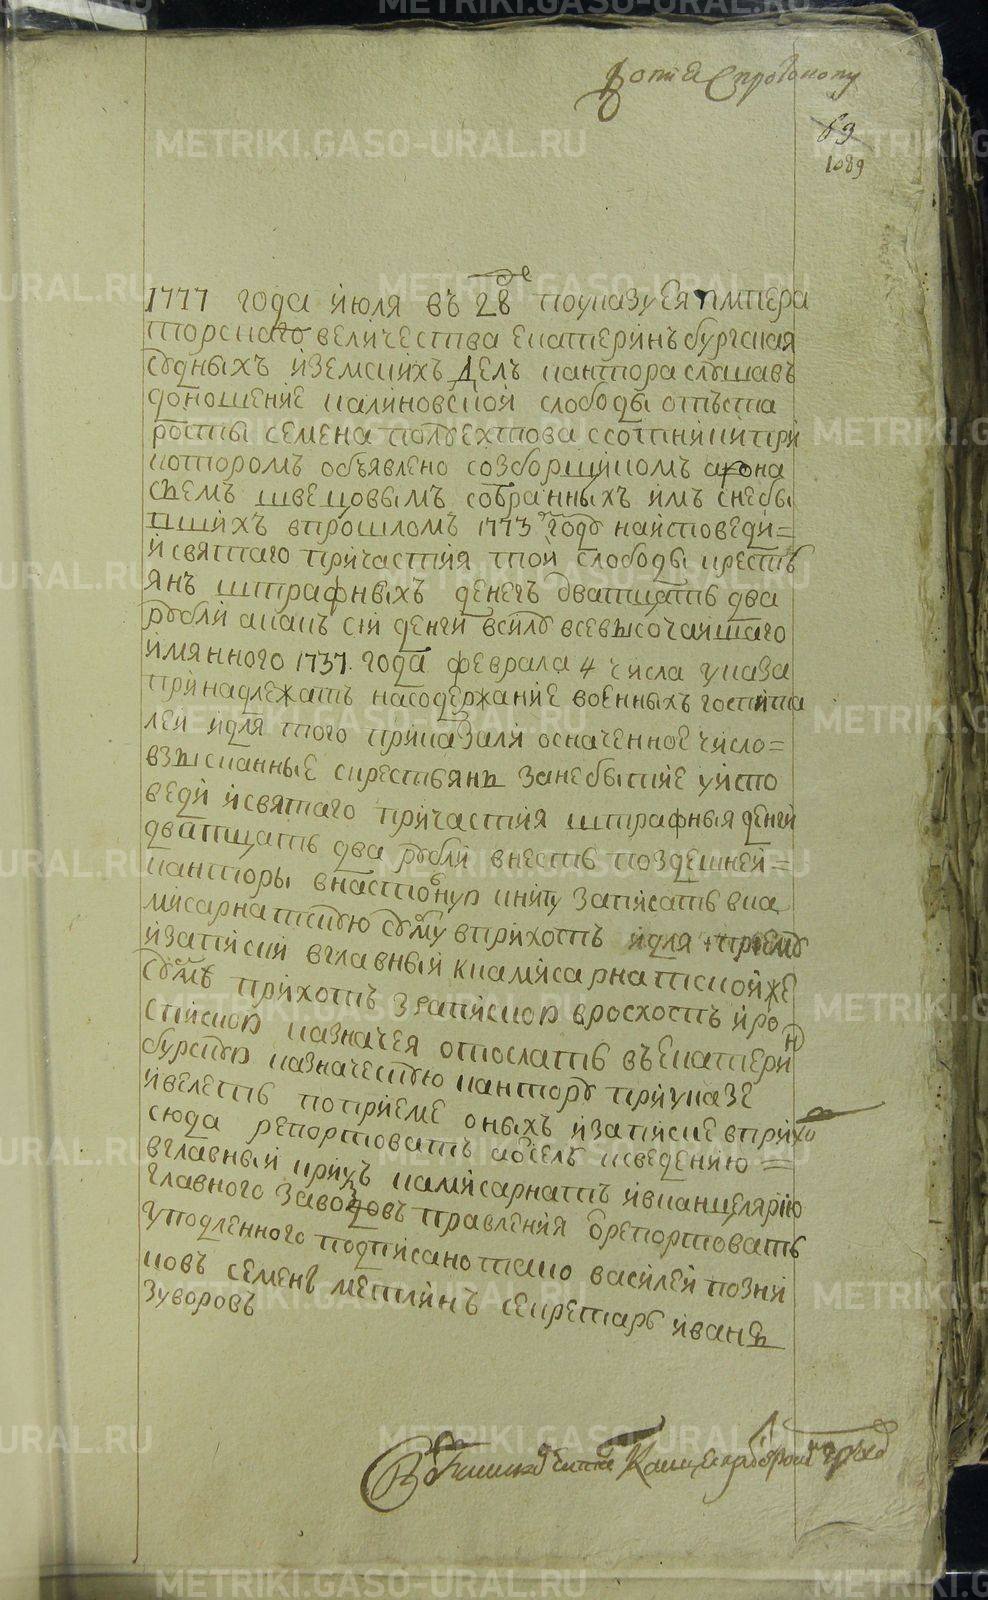 Копия Спротокола
69
1089
1777 года июля въ 28 де поуказу Ея императорскаго
торскаго величества екатеринъбургская
судныхъ иземскихъ Делъ кантора слушавъ
доношение калиновской слободы отъста
росты семена полуехтова ссотники при
которомъ объявлено созборщикомъ афона
сьемъ швецовымъ собранныхъ имъ снебы
вшихъ впрошломъ 1773 году наисповеди=
и святаго причастия той слободы кресть
янъ штрафныхъ денегъ дватцать два
рубли акакъ сiи денги всилу всевысочаишаго
имянного 1737. года февраля 4 числа указа
принадлежатъ насодержание военныхъ госпита
леи идля того приказали означенное число=
взысканные скрестьянъ занебытие уиспо
веди исвятаго причастия штрафныя денги
дватцать два рубли внесть поздешней=
канторы внастоленую книгу записать вка
мисариатскую суму вприхотъ идля приему
изаписки вглавный камисариатской же
суме прихотъ запискою вросхотъ иро
спискою назначея отослать въекатерин
бурскую казначескую кантору приуказе
ивелеть поприеме оныхъ изаписке вприхо
сюда репортовать аоселъ исведению=
вглавный кригъ камисариатъ ивканцелярию
главного заводовъ правления отрепортовать
уподленного подписано тако василей позни
ковъ семенъ метлинъ секретарь иванъ
зуворовъ